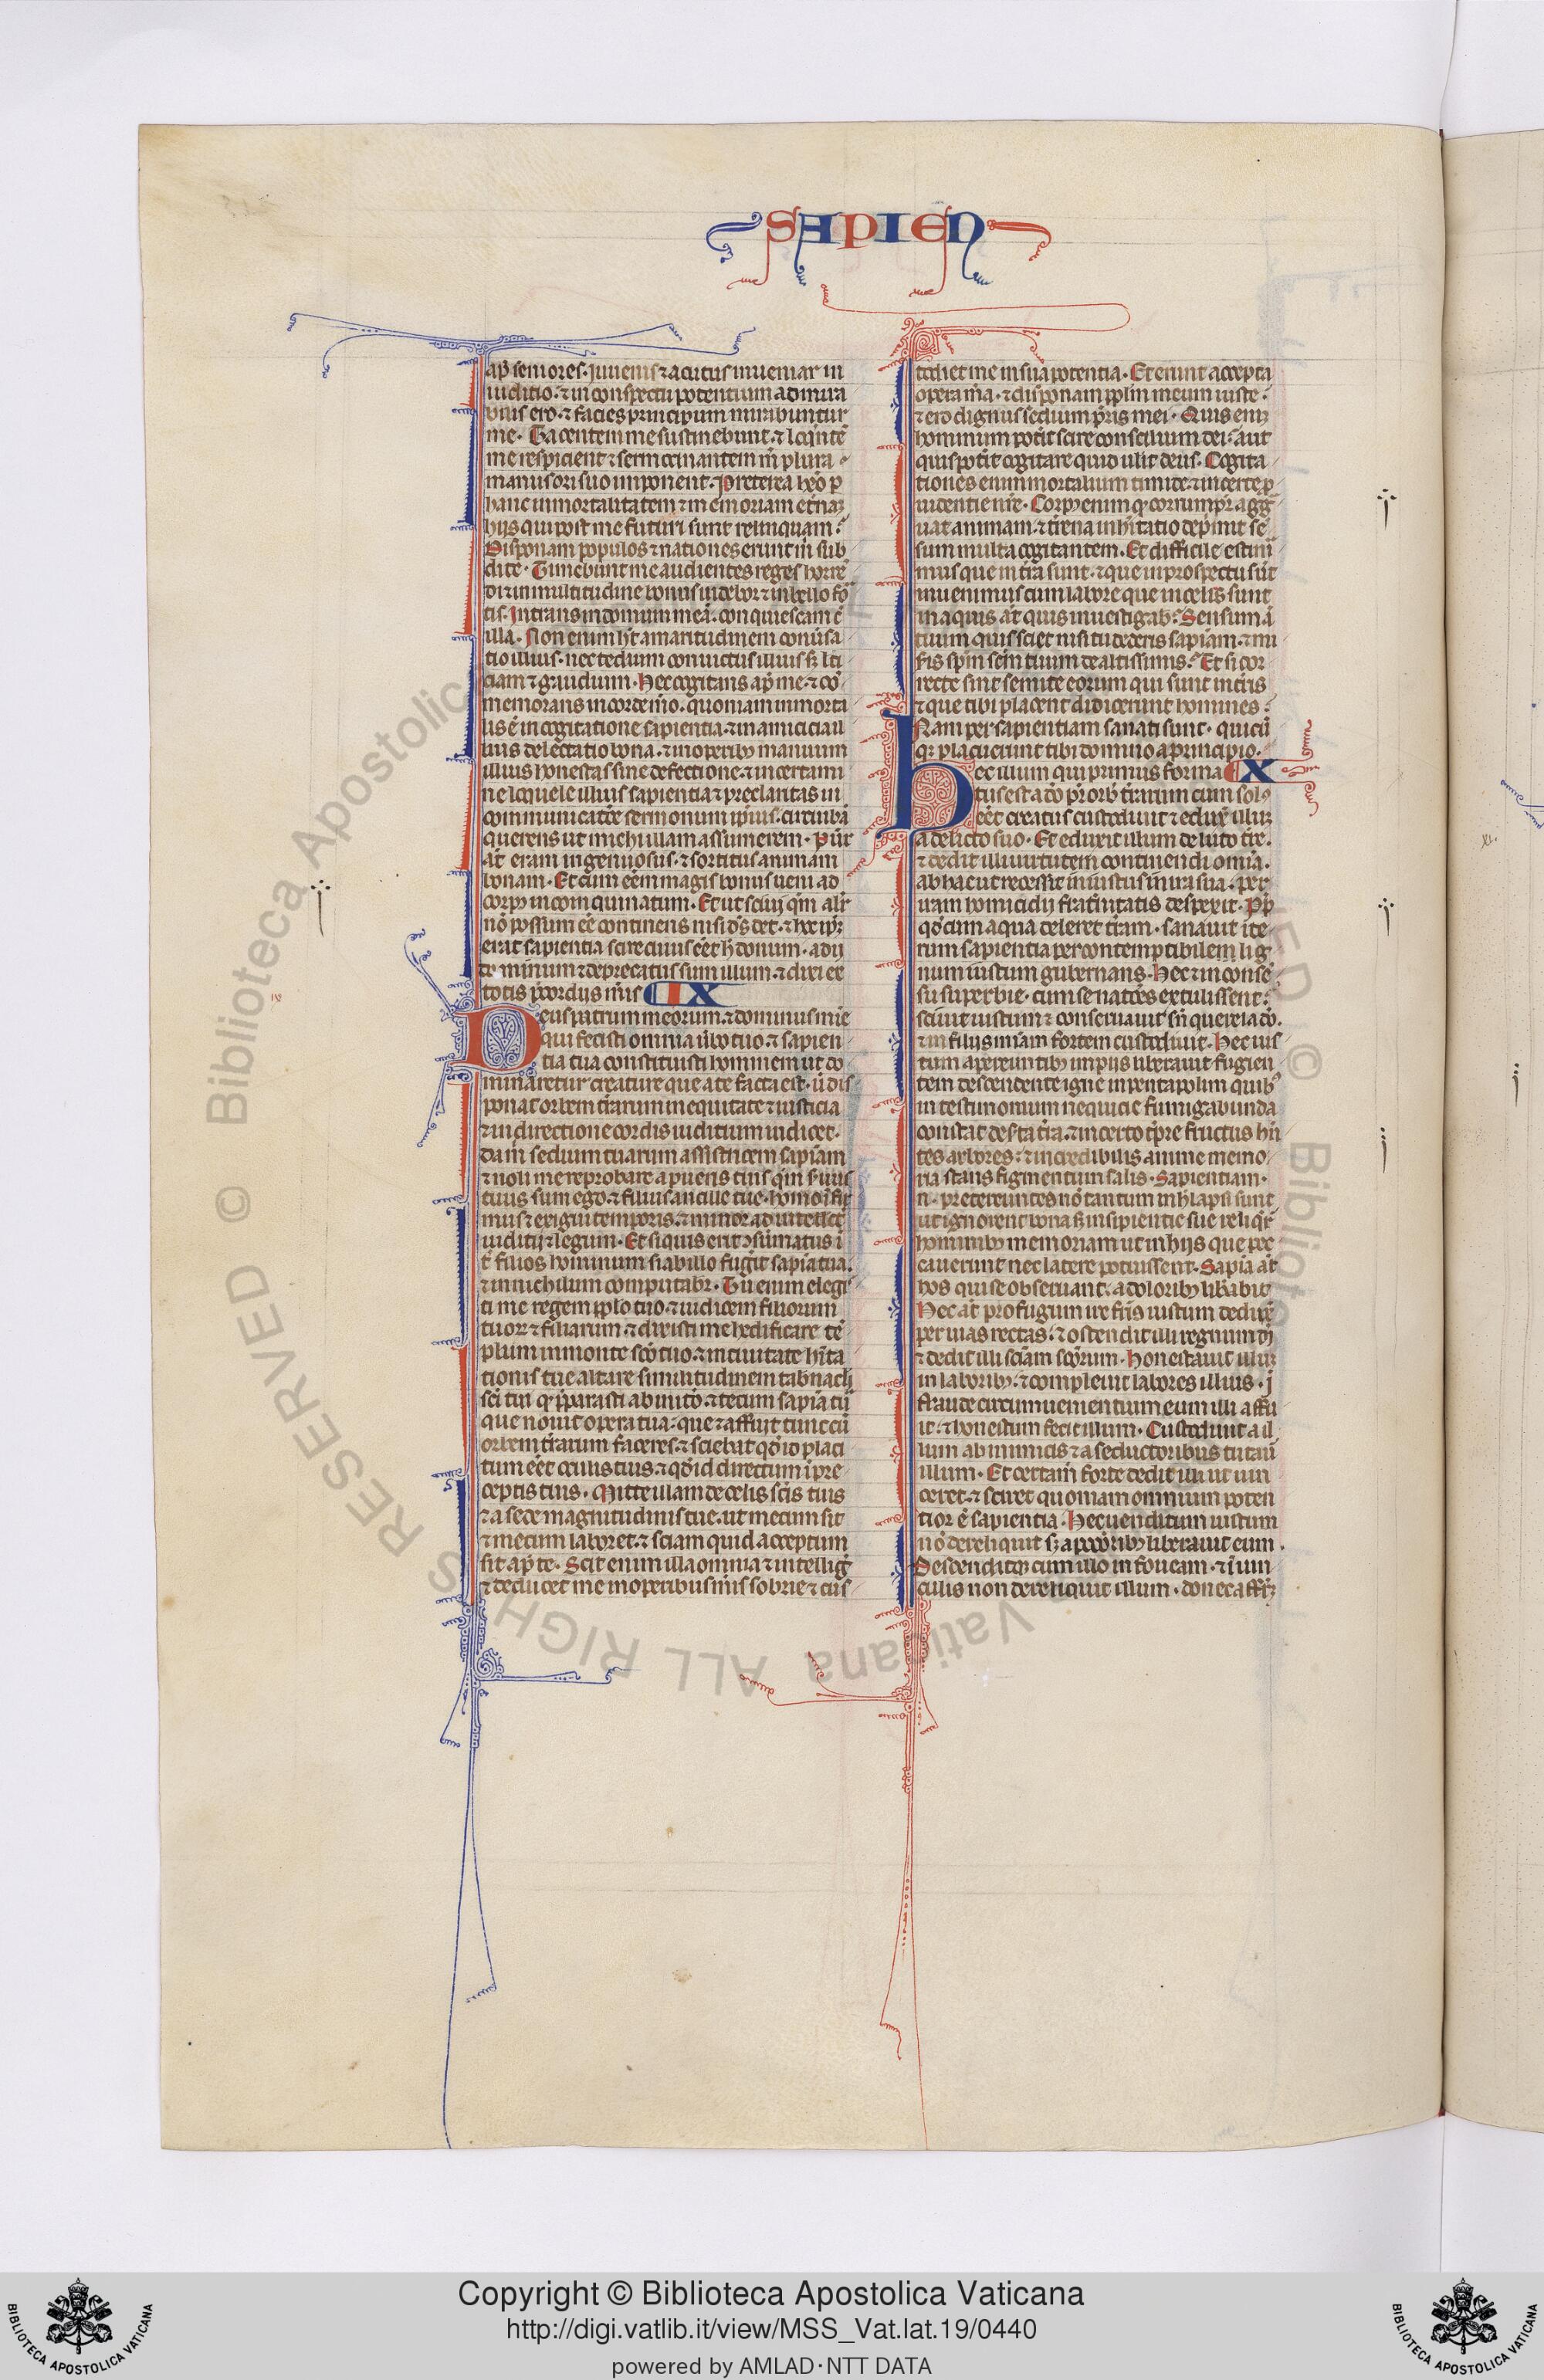 SAPIEN
ap̄ seniores. Iuuenis ⁊ acutus inueniar in
iuditio. ⁊ in conspectu potentium admira
bilis ero. ⁊ facies principum mirabuntur
me. Tacentem me sustinebunt. ⁊ loq̄ntē
me respicient ⁊ sermocinantem m̄ plura
manus ori suo imponent. Preterea hēo p̄
hanc inmortalitatem ⁊ memoriam et̄nā
hijs qui post me futuri sunt relinquam.
Disponam populos ⁊ nationes erunt m̄ sub
dite. Timebunt me audientes reges horrē
di ⁊ in multitudine bonus uidebor ⁊ in bello for
tis. Intrans in domum meā. conquiescam cū
illa. Non enim ht̄ amaritudinem conūsa
tio illius. nec tedium conuictus illius s; leti
ciam ⁊ gaudium. Hec cogitans ap̄ me. ⁊ cō
memorans in corde m̄o. quoniam inmorta
lis ē in cogitatione sapientia. ⁊ in amicicia il
lius delectatio bona. ⁊ in operib; manuum
illius honestas sine defectione. ⁊ in certami
ne loquele illius sapientia ⁊ preclaritas in
communicatōe sermonum ipsius. circuibā
querens ut michi illam assumerem. Puer
āt eram ingeniosus. ⁊ sortitus animam
bonam. Et cum eēm magis bonus ueni ad
corp; incoinquinatum. Et ut sciui qm̄ alit̄
nō possum eē continens nisi dē̄s det. ⁊ hoc ip̄m
erat sapientia scire cuius eēt h̄ donum. adij
dominum ⁊ deprecatus sum illum. ⁊ dixi ex
totis p̄cordijs m̄is IX
Deus patrum meorum. ⁊ dominus mīe
qui fecisti omnia ūbo tuo. ⁊ sapien
tia tua constituisti hominem ut do
minaretur creature que a te facta est. ut dis
ponat orbem t̄rarum in equitate ⁊ iusticia
⁊ in directione cordis iuditium iudicet.
Da m̄ sedium tuarum assistricem sapīam
⁊ noli me reprobare a pueris tuis qm̄ s̄uus
tuus sum ego. ⁊ filius ancille tue. homo īfir
mus ⁊ exigui temporis. ⁊ minor ad intellectū
iuditij ⁊ legum. Et si quis erit ɔsūmatus ī
t̄ filios hominum si ab illo fuḡit sapīa tua.
⁊ in nichilum computabr̄. Tu enim elegi
ti me regem pplo tuo. ⁊ iudicem filiorum
tuoꝝ ⁊ filiarum. ⁊ dixisti me hedificare tē
plum in monte scō tuo. ⁊ in ciuitate hīta
tionis tue altare similitudinem tab̄nacli
sc̄i tui qd̄ p̄parasti ab initō. ⁊ tecum sapīa tū
que nouit opera tua. que ⁊ affuit tunc cū
orbem t̄rarum faceres. ⁊ sciebat qd̄ placi
tum eēt oculis tuis. ⁊ qd̄ directum ī pre
ceptis tuis. Mitte illam de celis sc̄is tuis
⁊ a sede magnitudinis tue. ut mecum sit
⁊ mecum laboret. ⁊ sciam quid acceptum
sit ap̄ te. Scit enim illa omnia ⁊ intelligit
⁊ deducet me in operibus m̄is sobrie. ⁊ cus
todiet me in sua potentia. Et erunt accepta
opera m̄a. ⁊ disponam pplm̄ meum iuste.
⁊ ero dignus sedium p̄ris mei. Quis enim
hominum pot̄it scire consilium dei. aut
quis pot̄it cogitare quid uelit deus. Cogita
tiones enim mortalium timide. ⁊ incerte p̄
uidentie nr̄e. Corp; enim qd̄ corrumpit̄ aggͣ
uat animam. ⁊ t̄rena inhītatio dep̄mit sē
sum multa cogitantem. Et difficile estima
mus que in t̄ra sunt. ⁊ que in prospectu sūt
inuenimus cum labore que in celis sunt
āt quis inuestigab̄. Sensum āt
tuum quis sciet nisi tu dederis sapīam. ⁊ mi
s̄is sp̄m sc̄m tuum de altissimis. Et si cor
recte sint semite eorum qui sunt in t̄ris
⁊ que tibi placent didicerint homines.
Nam per sapientiam sanati sunt. quicū
qꝫ placuerunt tibi domine a principio.
Hec illum qui primus forma X
tus est a dō p̄r orb̄ t̄rarum cum solꝰ
eēt creatus custodiuit ⁊ eduxit illum
a delicto suo. Et eduxit illum de luto t̄re.
⁊ dedit illi uirtutem continendi omīa.
ab hac ut recessit iniustus in ira sua. per
iram homicidij frat̄nitatis desperijt. Pp̄
qd̄ cum aqua deleret t̄ram. sanauit ite
rum sapientia per contemptibilem lig
num iustum gubernans. Hec ⁊ in consē
su superbie. cum se natōes extulissent.
sciuit iustum ⁊ conseruauit sn̄ querela dō.
⁊ in filijs mīam fortem custodiuit. Hec ius
tum a pereuntib; impijs liberauit fugien
tem descendente igne in pentapolim quibꝰ
in testimonium nequicie fumigabunda
constat deserta t̄ra. ⁊ incerto tp̄re fructus hn̄
tes arbores. ⁊ incredibilis anime memo
ria stans figmentum salis. Sapientiam.
n. pretereuntes nō tantum in h̄ lapsi sunt
ut ignorent bona s; insipientie sue reliq̄rt̄
hominib; memoriam ut in hijs que pec
cauerunt nec latere potuissent. Sapīa āt
hos qui se obseruant. a dolorib; lib̄abit
Hec āt profugum ire fr̄is iustum deduxit
per uias rectas. ⁊ ostendit illi regnum dī
⁊ dedit illi scīam sc̄orum. Honestauit illum
in laborib;. ⁊ compleuit labores illius. I
fraude circumuenientium eum illi affu
it. ⁊ honestum fecit illum. Custodiuit il
lum ab inimicis ⁊ a seductoribus tutauit
illum. Et certam̄ forte dedit illi ut uin
ceret. ⁊ sciret quoniam omnium poten
tior ē sapientia. Hec uenditum iustum
nō dereliquit s; a pccōrib; liberauit eum.
Descenditqꝫ cum illo in foueam. ⁊ ī uin
culis non dereliquit illum. donec affr̄et
Copyright © Biblioteca Apostolica Vaticana
http://digi.vatlib.it/view/MSS_Vat.lat.19/0440
powered by AMLAD·NTT DATA
BIBLIOTECA APOSTOLICA VATICANA
BIBLIOTECA APOSTOLICA VATICANA